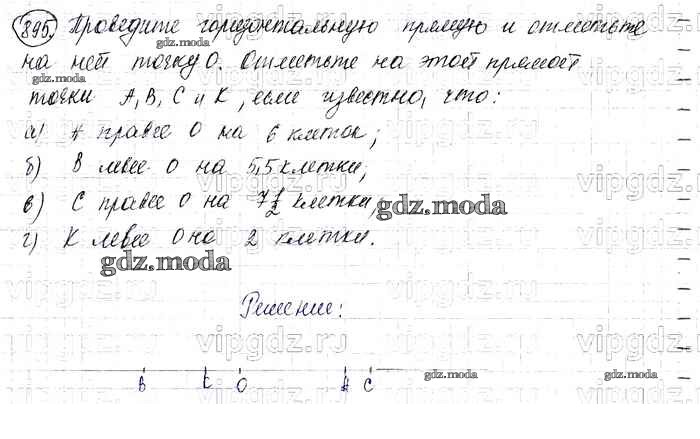 895. Проведите горизонтальную прямую и отметьте
на ней точку О. Отметьте на этой прямой
точки А, В, С и К, если известно, что:
а) А правее О на 6 клеток;
б) В левее О на 5,5 клетки;
в) С правее О на 7 1/2 клетки;
г) К левее О на 2 клетки.
Решение:
В К О А С
gdz.moda
gdz.moda
gdz.moda
gdz.moda
gdz.moda
gdz.moda
vipgdz.ru
vipgdz.ru
vipgdz.ru
vipgdz.ru